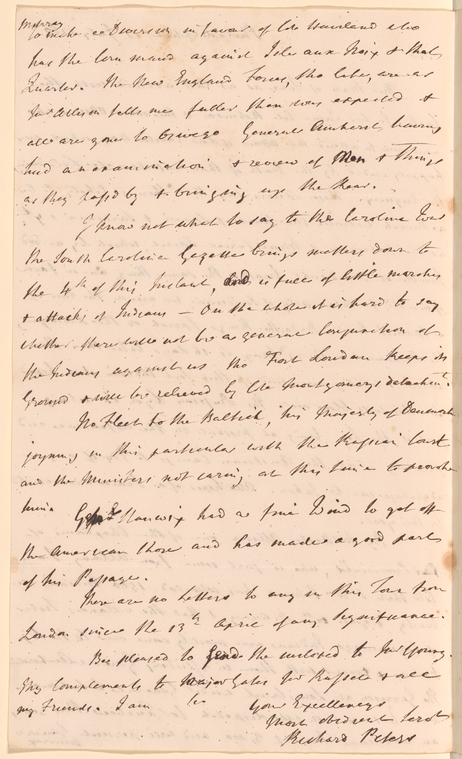 Murray
to make a Diversion in favor of Col. Haviland who
has the Command against Isle aux Noix & that
Quarter. The New England Forces, tho late, are as
Mr Allison tells me fuller than was expected &
all are gone to Oswego General Amherst having
had an examination & review of Men & Things
as they pass'd by & bringing up the Rear.
I know not what to say to the Carolina War
the South Carolina Gazette brings matters down to
the 4th of this Instant, and is full of little marches
& attacks of Indians — On the whole it is hard to say
whether there will not be a general Conjunction of
the Indians against us tho Fort Loudoun keeps its
Ground & will be relieved by Col. Montgomerys detachmt.
No Fleet to the Baltick, his Majesty of Denmark
joyning in this particular with the Russian Court
and the Ministers not caring at this time to provoke
him
Genl Stanwix had a fine Wind to get off
the American Shore and has made a good part
of his Passage.
There are no Letters to any in this Town from
London since the 13th April of any Significance.
Be pleased to send the inclosed to Mr Young.
My Complements to Major Gates Mr Russell & all
my Friends. I am
Your Excellencys
Most obedient Servt
Richard Peters